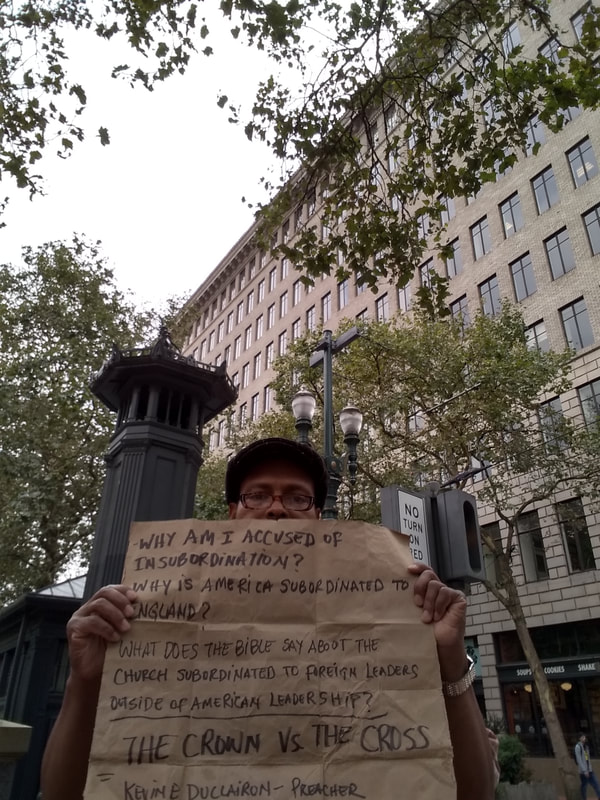 NO
TURN
ON
RED
-WHY AM I ACCUSED OF
INSUBORDINATION?
WHY IS AMERICA SUBORDINATED TO
ENGLAND?
WHAT DOES THE BIBLE SAY ABOUT THE
CHURCH SUBORDINATED TO FOREIGN LEADERS
OUTSIDE OF AMERICAN LEADERSHIP?
THE CROWN VS. THE CROSS
KEVIN E DUCLAIRON- PREACHER
SOUPS COOKIES SHAKE